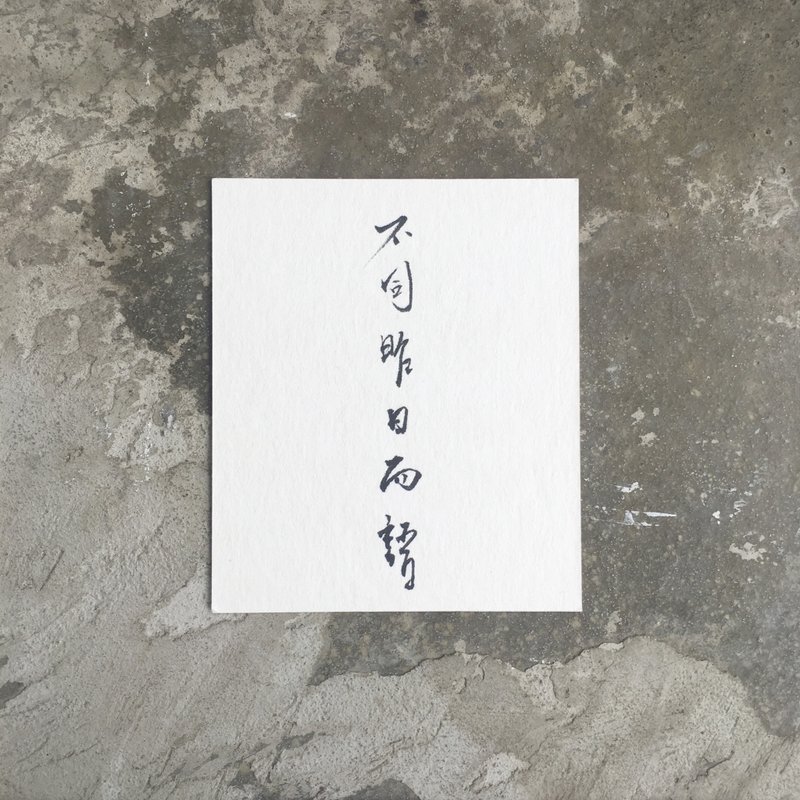 不同昨日而